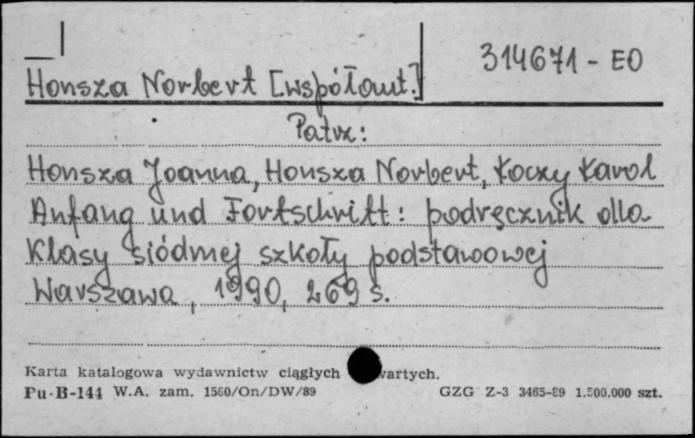 314671 - EO
Honsza Norbert [współaut.]
Patrz:
Honsza Joanna, Honsza Norbert, Koczy Karol
Anfang und Fortschritt: podręcznik dla
klasy siódmej szkoły podstawowej
Warszawa, 1990, 269 s.
Karta katalogowa wydawnictw ciągłych wartych.
Pu-B-144 W.A. zam. 1560/On/DW/89 GZG Z-3 3465-89 1.500.000 szt.